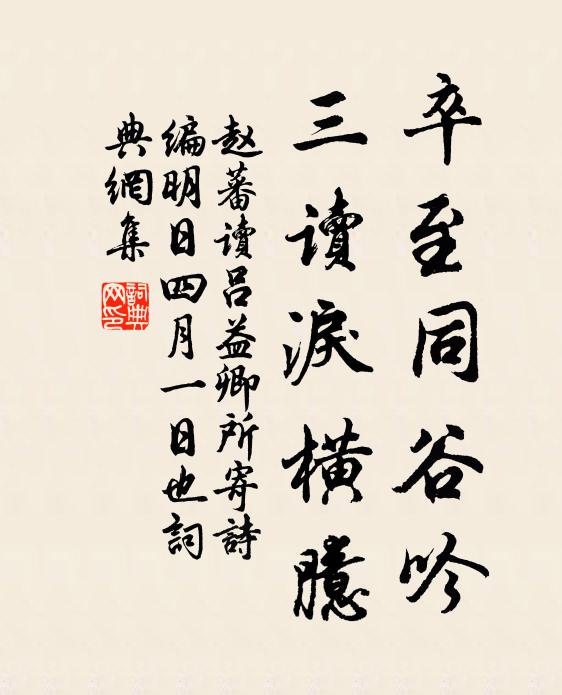 卒至同谷吟
三讀淚橫臆
赵蕃讀呂益卿所寄詩
編明日四月一日也詞
典網集
詞典網印